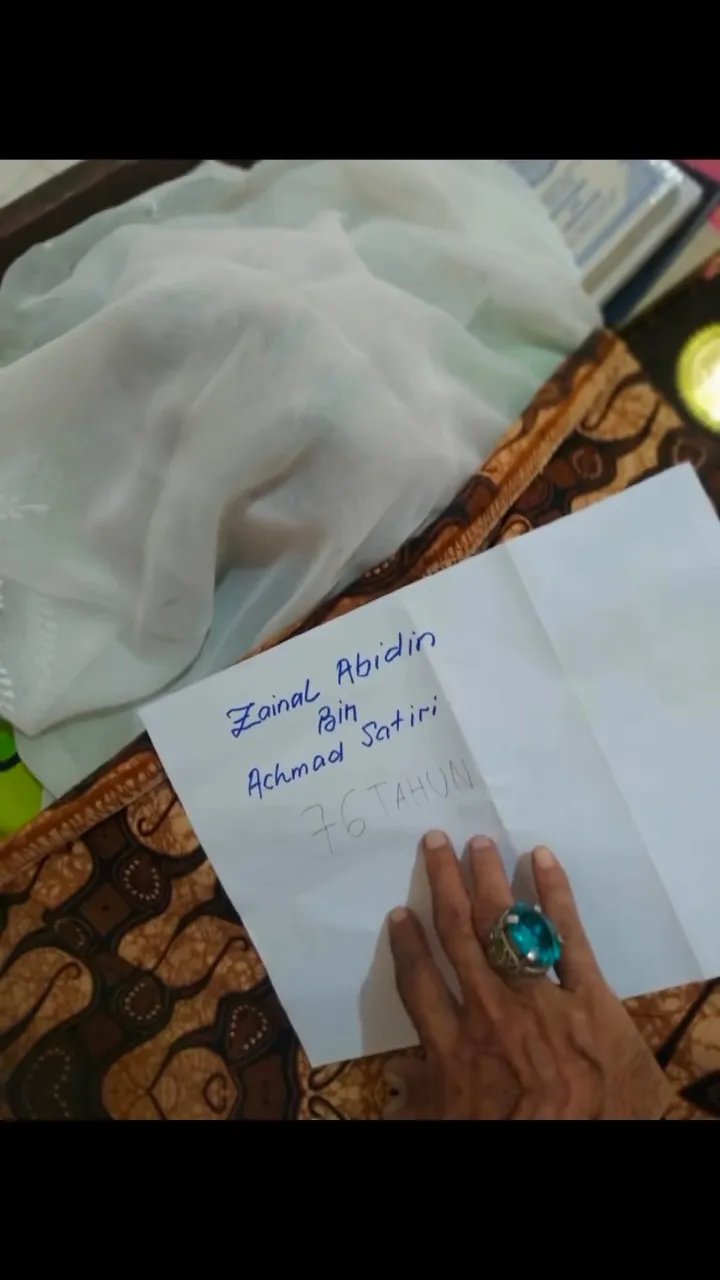 Zainal Abidin
Bin
Achmad Satiri
76 TAHUN